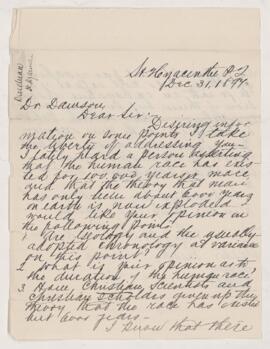 St. Hyacinthe P. Q.
Dec 31, 1897.
Dr Dawson,
Dear Sir:-
Desiring infor
mation on some points I take
the liberty of addressing you
I lately heard a person
that the human race has exis
ted for 100.000 years or more
and that the theory that man
has only been about 6000 years
on earth is now exploded. I
would like your opinion on
the following points
1 Are Geology and the usually
adopted chronology at variance
on this point?
2 What is your opinion as to
the duration of the human race?
3 Have Christian Scientists and
Christian Scholars given up the
theory that the race has exis
but 6000 years-
I know that there